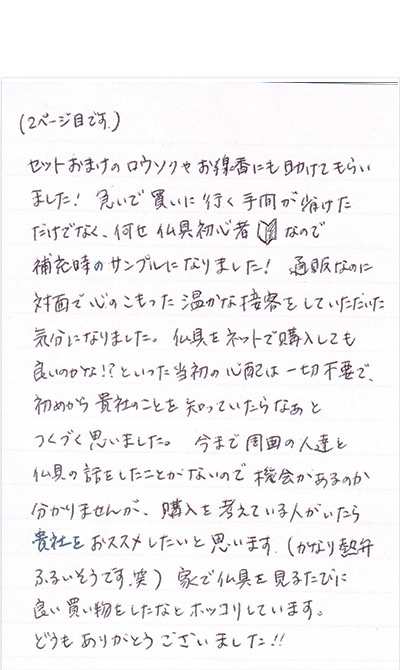 (2ページ目です。)
セットおまけのロウソクやお線香にも助けてもらい
ました! 急いで買いに行く手間が省けた
だけでなく、何せ仏具初心者なので
補充時のサンプルになりました! 通販なのに
対面で心のこもった温かな接客をしていただいた
気分になりました。仏具をネットで購入しても
良いのかな!?といった当初の心配は一切不要で、
初めから貴社のことを知っていたらなぁと
つくづく思いました。 今まで周囲の人達と
仏具の話をしたことがないので機会があるのか
分かりませんが、購入を考えている人がいたら
貴社をおススメしたいと思います。(かなり熱弁
ふるいそうです。笑) 家で仏具を見るたびに
良い買い物をしたなとホッコリしています。
どうもありがとうございました!!